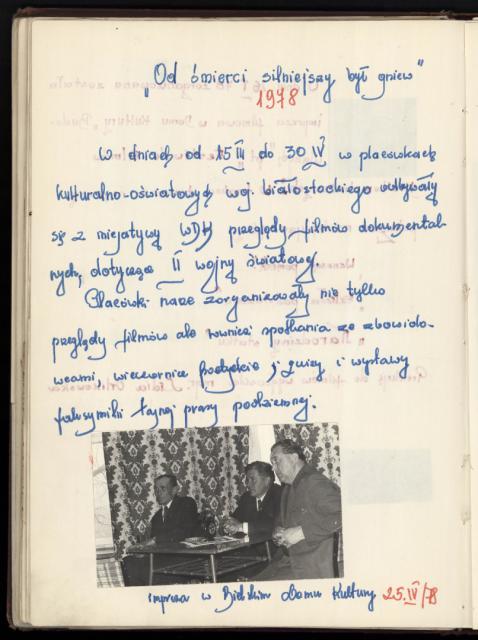 „Od śmierci silniejszy był gniew"
1978
W dniach od 15 III do 30 IV w placówkach
kulturalno-oświatowych woj. białostockiego odbywały
się z inicjatywy WDK przeglądy filmów dokumental-
nych, dotyczące II wojny światowej.
Placówki nasze zorganizowały nie tylko
przeglądy filmów ale również spotkania ze zbowido-
wcami, wieczornice poetyckie, quizy i wystawy
faksymilki tajnej prasy podziemnej.
impreza w Bielskim Domu Kultury 25.IV/78